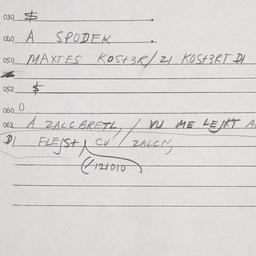 030 $
040 A SPODEK
050 MAXTES KOST3R/21 KOST3RT DI
052 $
060 0
061 A ZALC BRETL, / VU ME LEJKT A
DI FLEJST, CU ZALCN,
(/121010